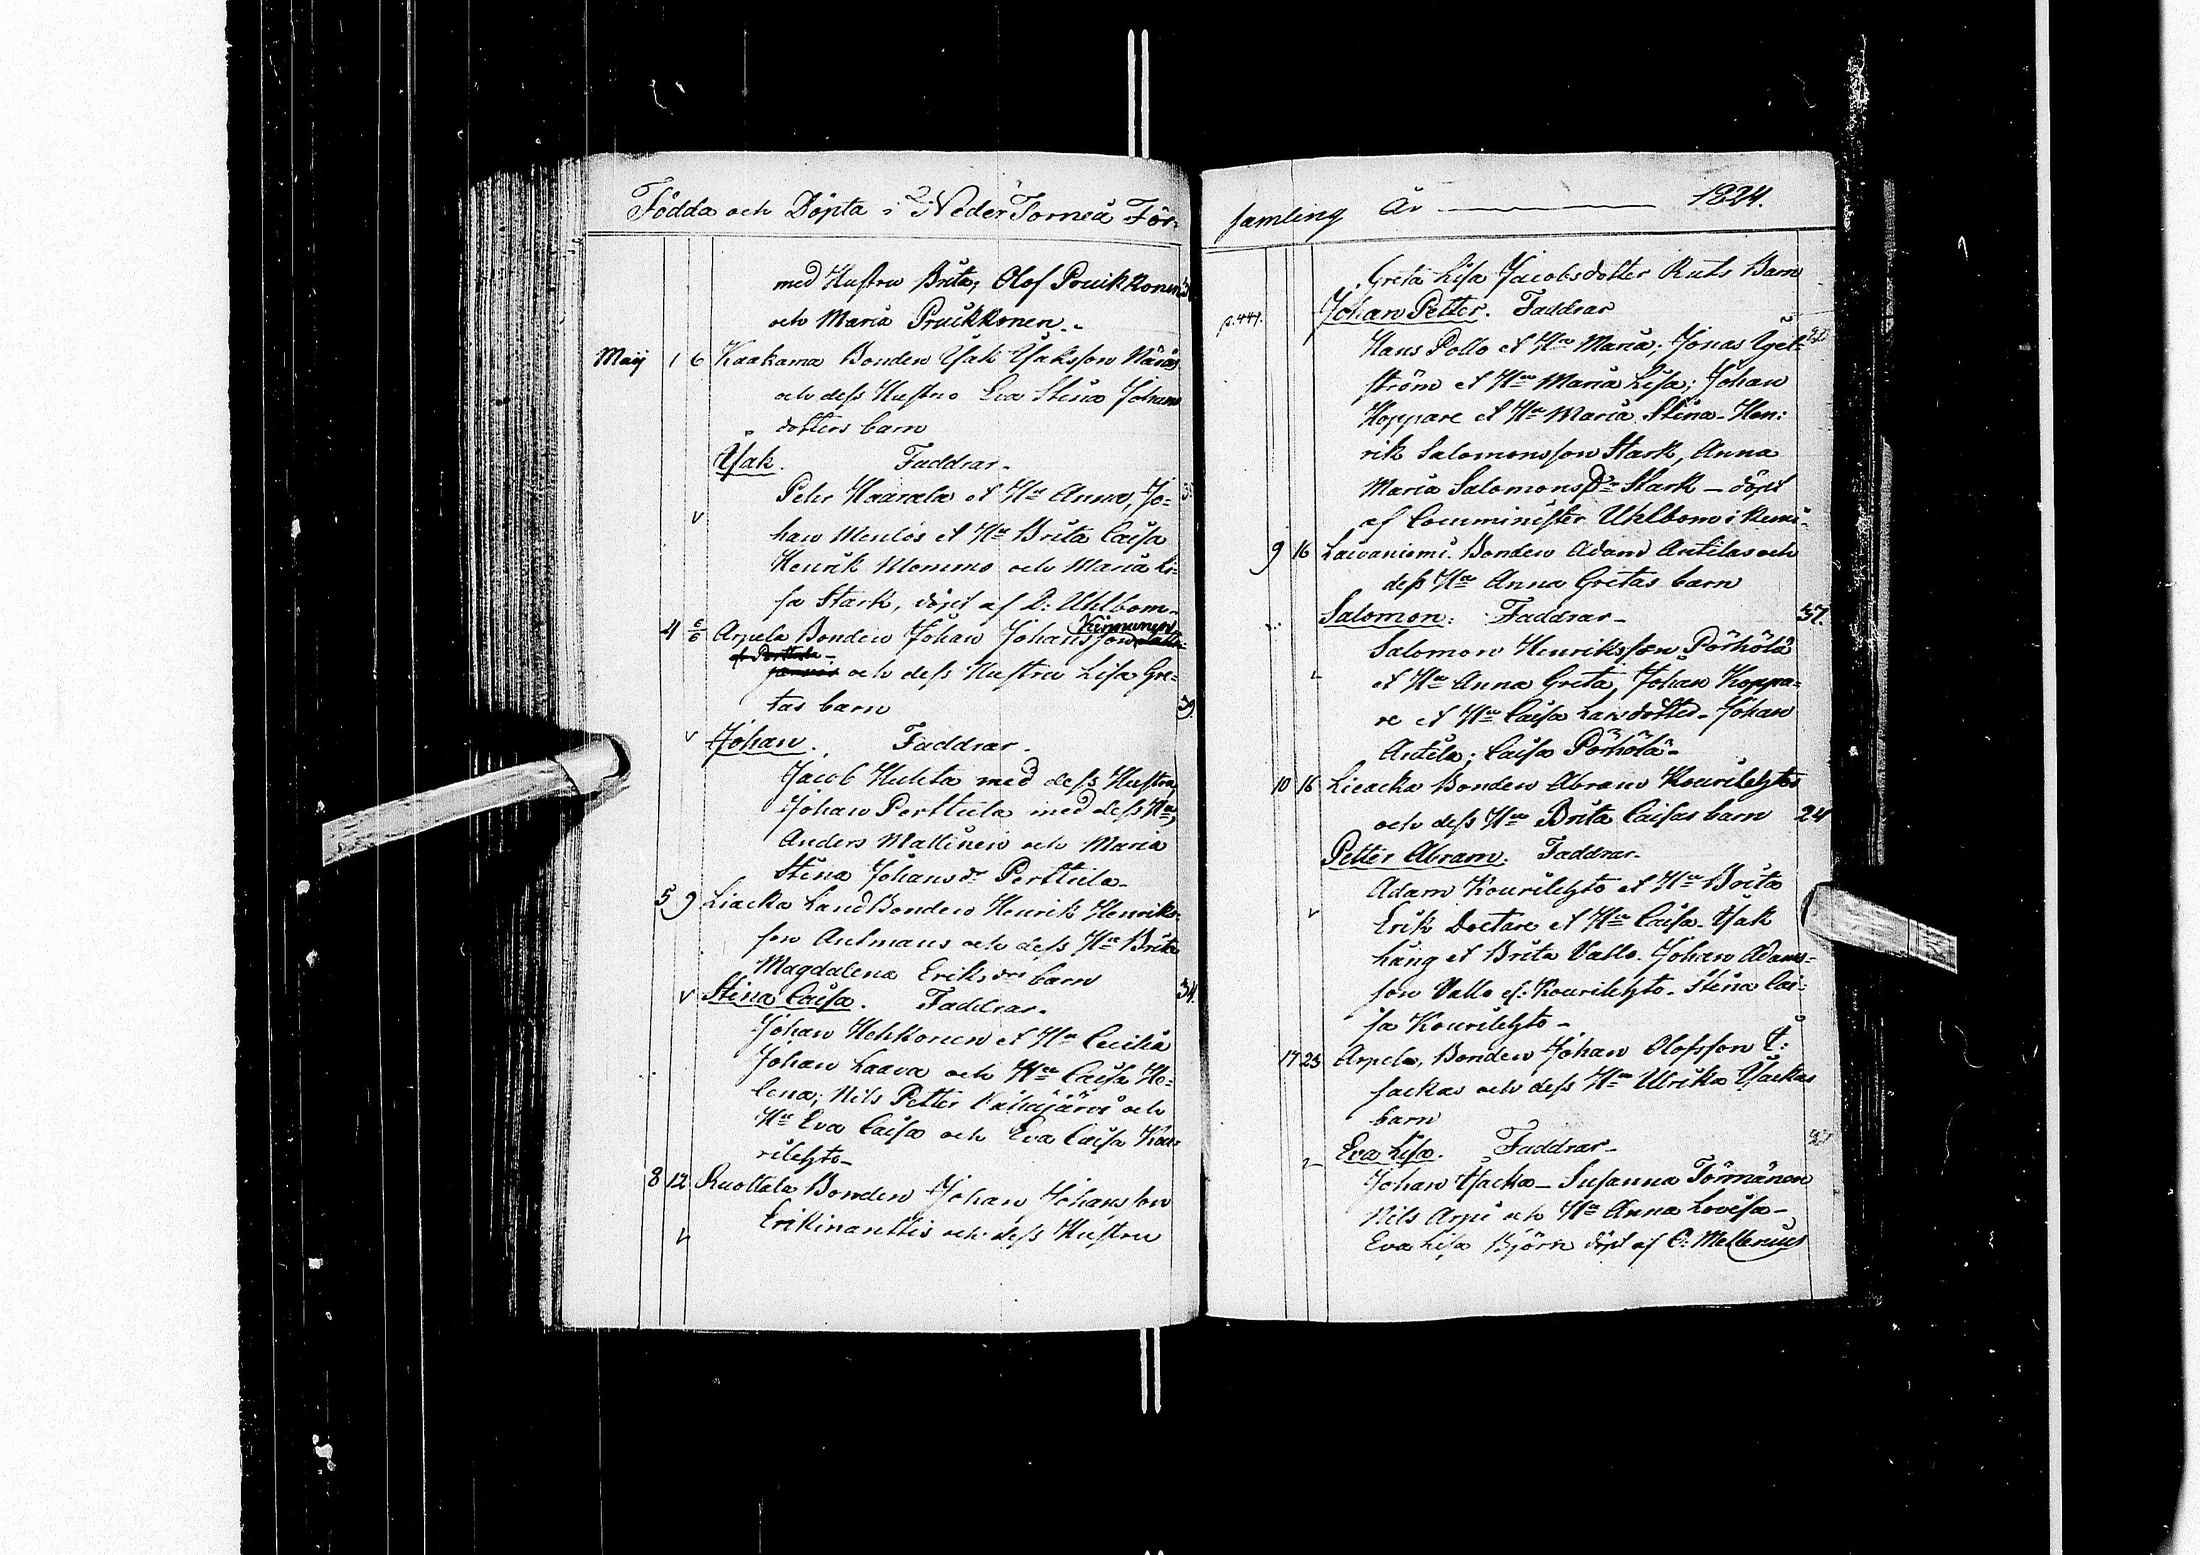 Födda och Döpta i Neder Torneå För-
med Hustru Brita; Olof Pruikkonen
och Maria Pruikkonen.
Maij 1 6 Kaakama Bonden Isak Isaksson
och dess Hustru Eva Stina Johans
dotters barn
Isak. Faddrar.
Pehr Haarala et Hu Anna, Jo-
v
han Menlös et Hu Brita Caisa
Henrik Mommo och Maria Li-
sa Stark, döpt af D: Uhlbom.
Kinnunen
4 6/6 Arpela Bonden Johan Johansson
och dess Hustru Lisa Gre-
tas barn 39.
v Johan. Faddrar.
Jacob Huhta med dess Hustru,
Johan Perttula med dess Hu,
Anders Mattinen och Maria
Stina Johansdr Perttula.
5 9 Liacka Landbonden Henrik Henriks-
son Aulmans och dess Hu Brita
Magdalena Eriksdrs barn
v Stina Caisa. Faddrar. 34.
Johan Hekkonen et Hu Cecilia
Johan Laava och Hu Caisa He-
lena; Nils Petter och
Hu Eva Caisa och Eva Caisa Kou-
rilehto
8 12 Ruottala Bonden Johan Johansson
v Erikinanttis och dess Hustru
samling År 1824.
Greta Lisa Jacobsdotter Ruts Barn
p. 441. Johan Petter. Faddrar
Hans Pollo et Hu Maria; Jonas Igel-
ström et Hu Maria Lisa; Johan
Hoppare et Hu Maria Stina. Hen:
rik Salomonsson Stark, Anna
Maria Salomons Dr Stark – döpt
af Comminister Uhlbom i Kemi.
9 16 Laivaniemi Bonden Adam Anttilas och
dess Hu Anna Gretas barn
Salomon: Faddrar. 37.
Salomon Henriksson Pörhölä
v et Hu Anna Greta, Johan Hoppa-
re et Hu Caisa Larsdotter. Johan
Anttila; Caisa Pörhölä.
10 16 Liacka Bonden Abram Kourilehtos
och dess Hu Brita Caisas barn 24
Petter Abram. Faddrar.
Adam Kourilehto et Hu Brita
v Erik et Hu Caisa. Isak
Häng et Brita Vallo. Johan Adams-
son Vallo el: Kourilehto. Stina Cai-
sa Kourilehto –
17 23 Arpela, Bonden Johan Olofsson I:
sackas och dess Hu Ulrika Isackas
barn
v Eva Lisa. Faddrar.
Johan Isacka – Susanna Törmänen
Nils Arpi och Hu Anna Lovisa –
Eva Lisa Björn döpt af C: Mellenius